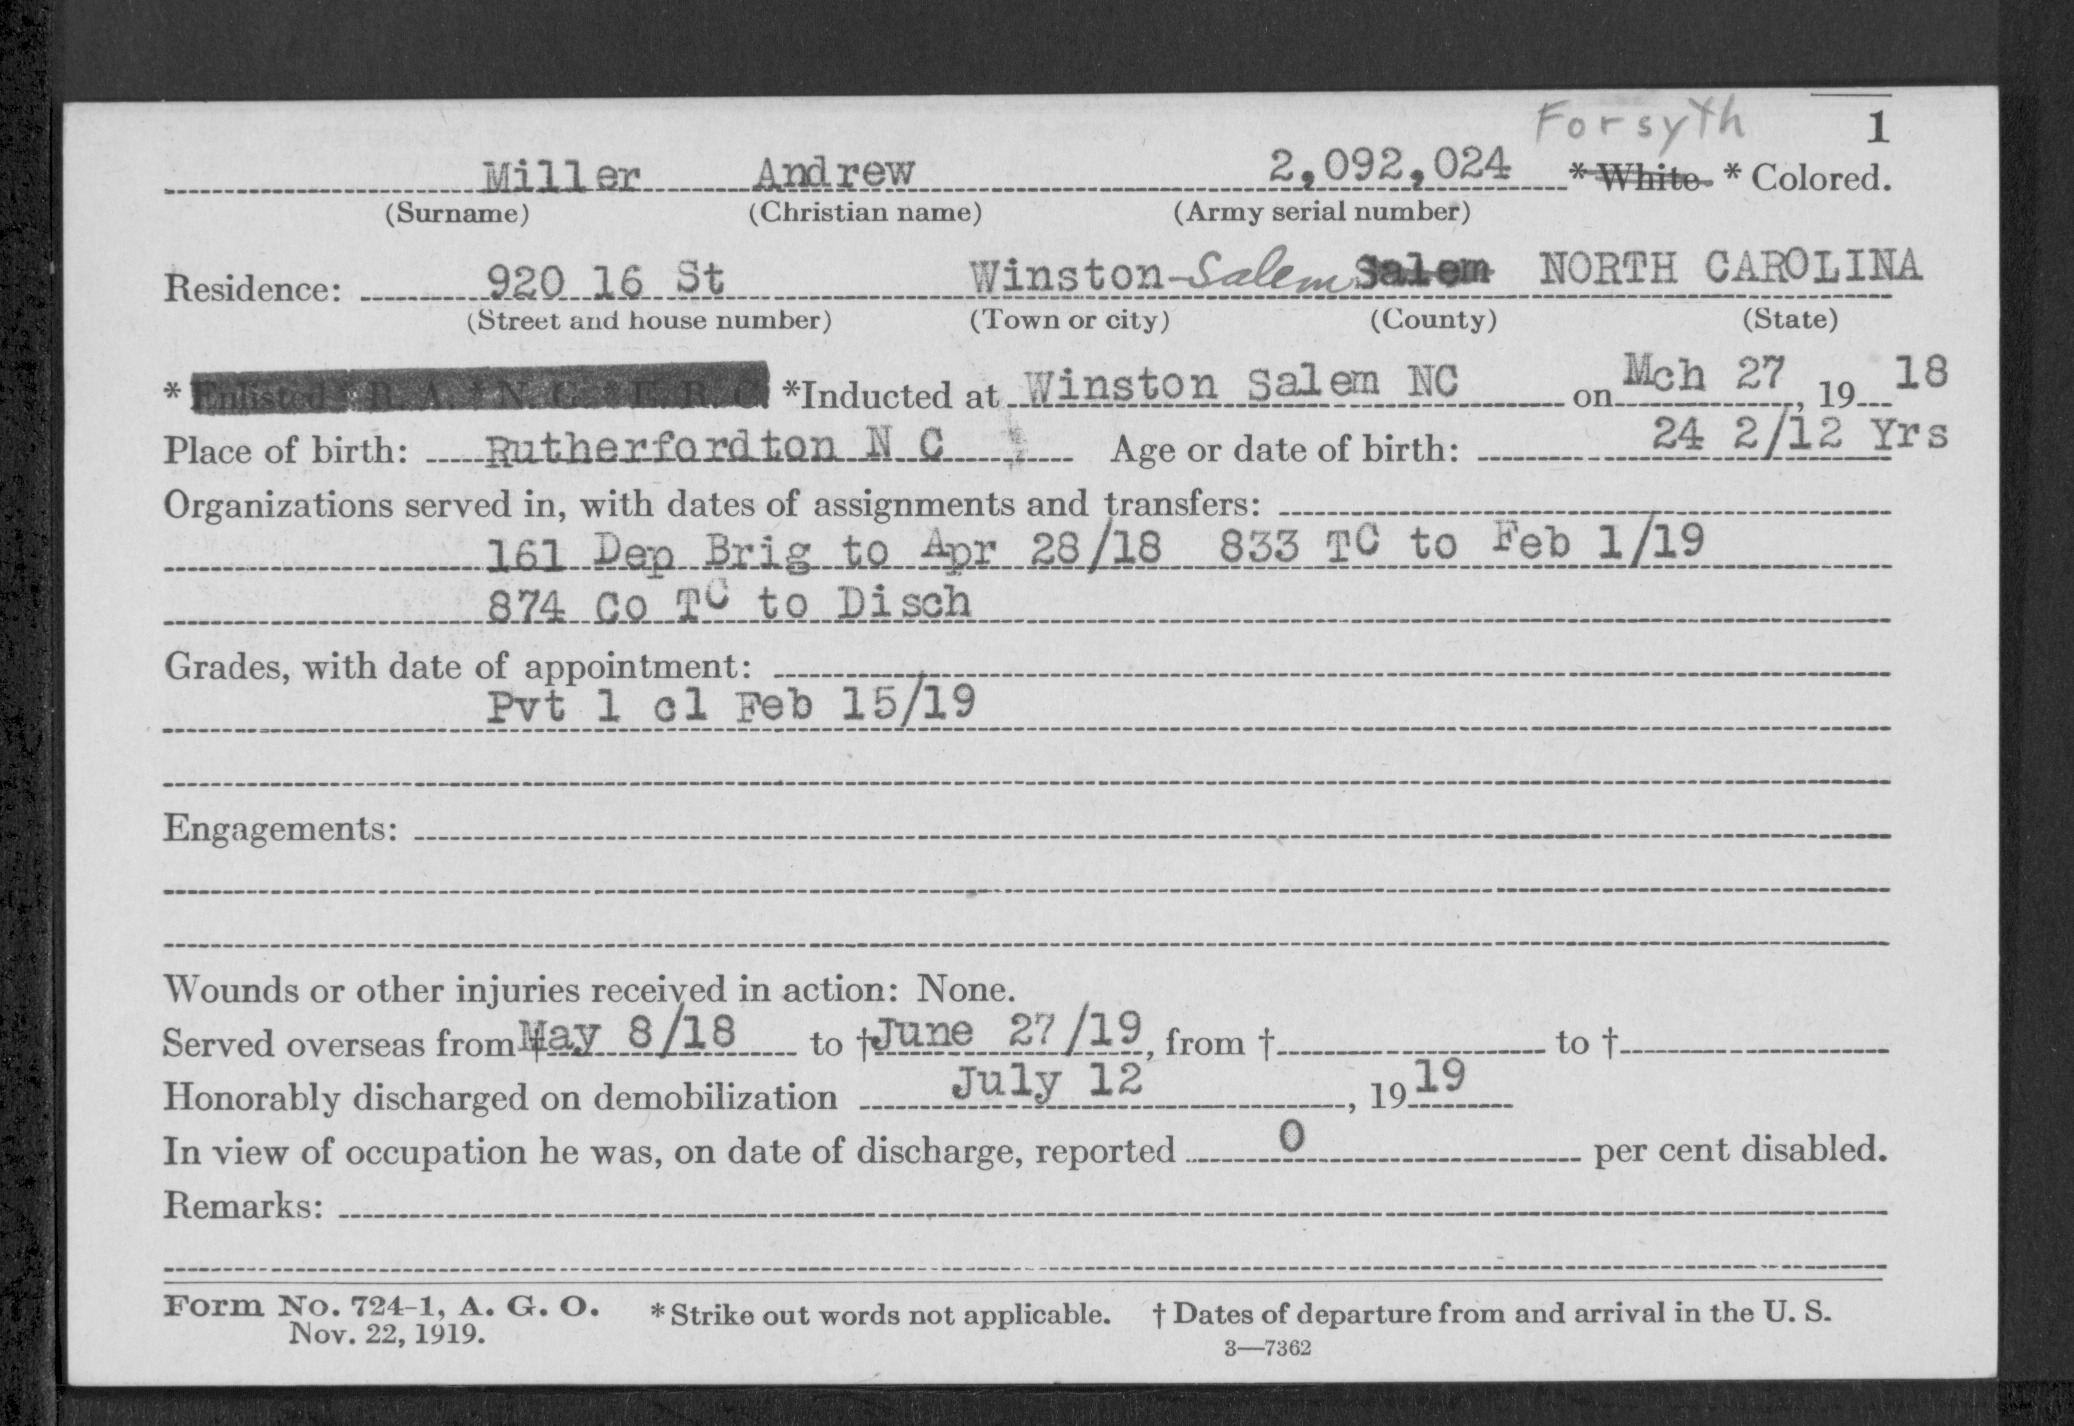 Forsyth 1
Miller Andrew 2,092,024 * White * Colored.
(Surname) (Christian name) (Army serial number)
Residence: 920 16 St Winston-Salem Salem NORTH CAROLINA
(Street and house number) (Town or city) (County) (State)
* Enlisted * R. A. * N. G. * E. R. C. *Inducted at Winston Salem NC on Mch 27, 19 18
Place of birth: Rutherfordton N C Age or date of birth: 24 2/12 Yrs
Organizations served in, with dates of assignments and transfers:
161 Dep Brig to Apr 28/18 833 TC to Feb 1/19
874 Co TC to Disch
Grades, with date of appointment:
Pvt 1 cl Feb 15/19
Engagements:
Wounds or other injuries received in action: None.
Served overseas from † May 8/18 to † June 27/19, from † to †
Honorably discharged on demobilization July 12, 19 19
In view of occupation he was, on date of discharge, reported 0 per cent disabled.
Remarks:
Form No. 724-1, A. G. O. * Strike out words not applicable. † Dates of departure from and arrival in the U. S.
Nov. 22, 1919.
3—7362